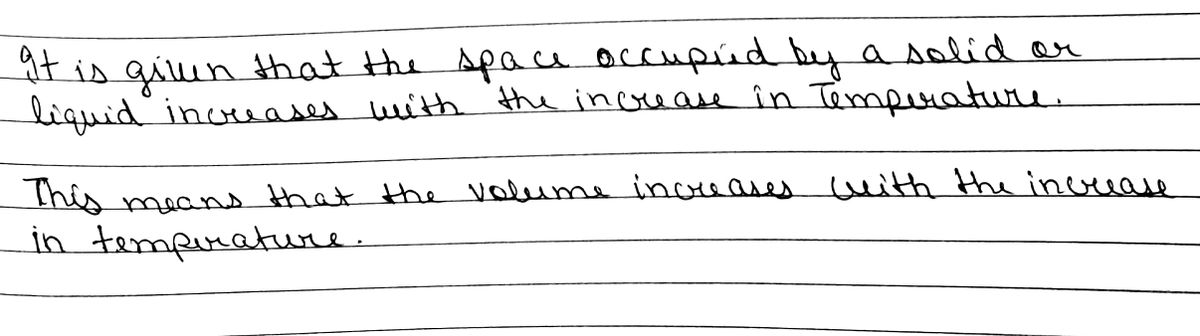 It is given that the space occupied by a solid or
liquid increases with the increase in Temperature.
This means that the volume increases with the increase
in temperature.